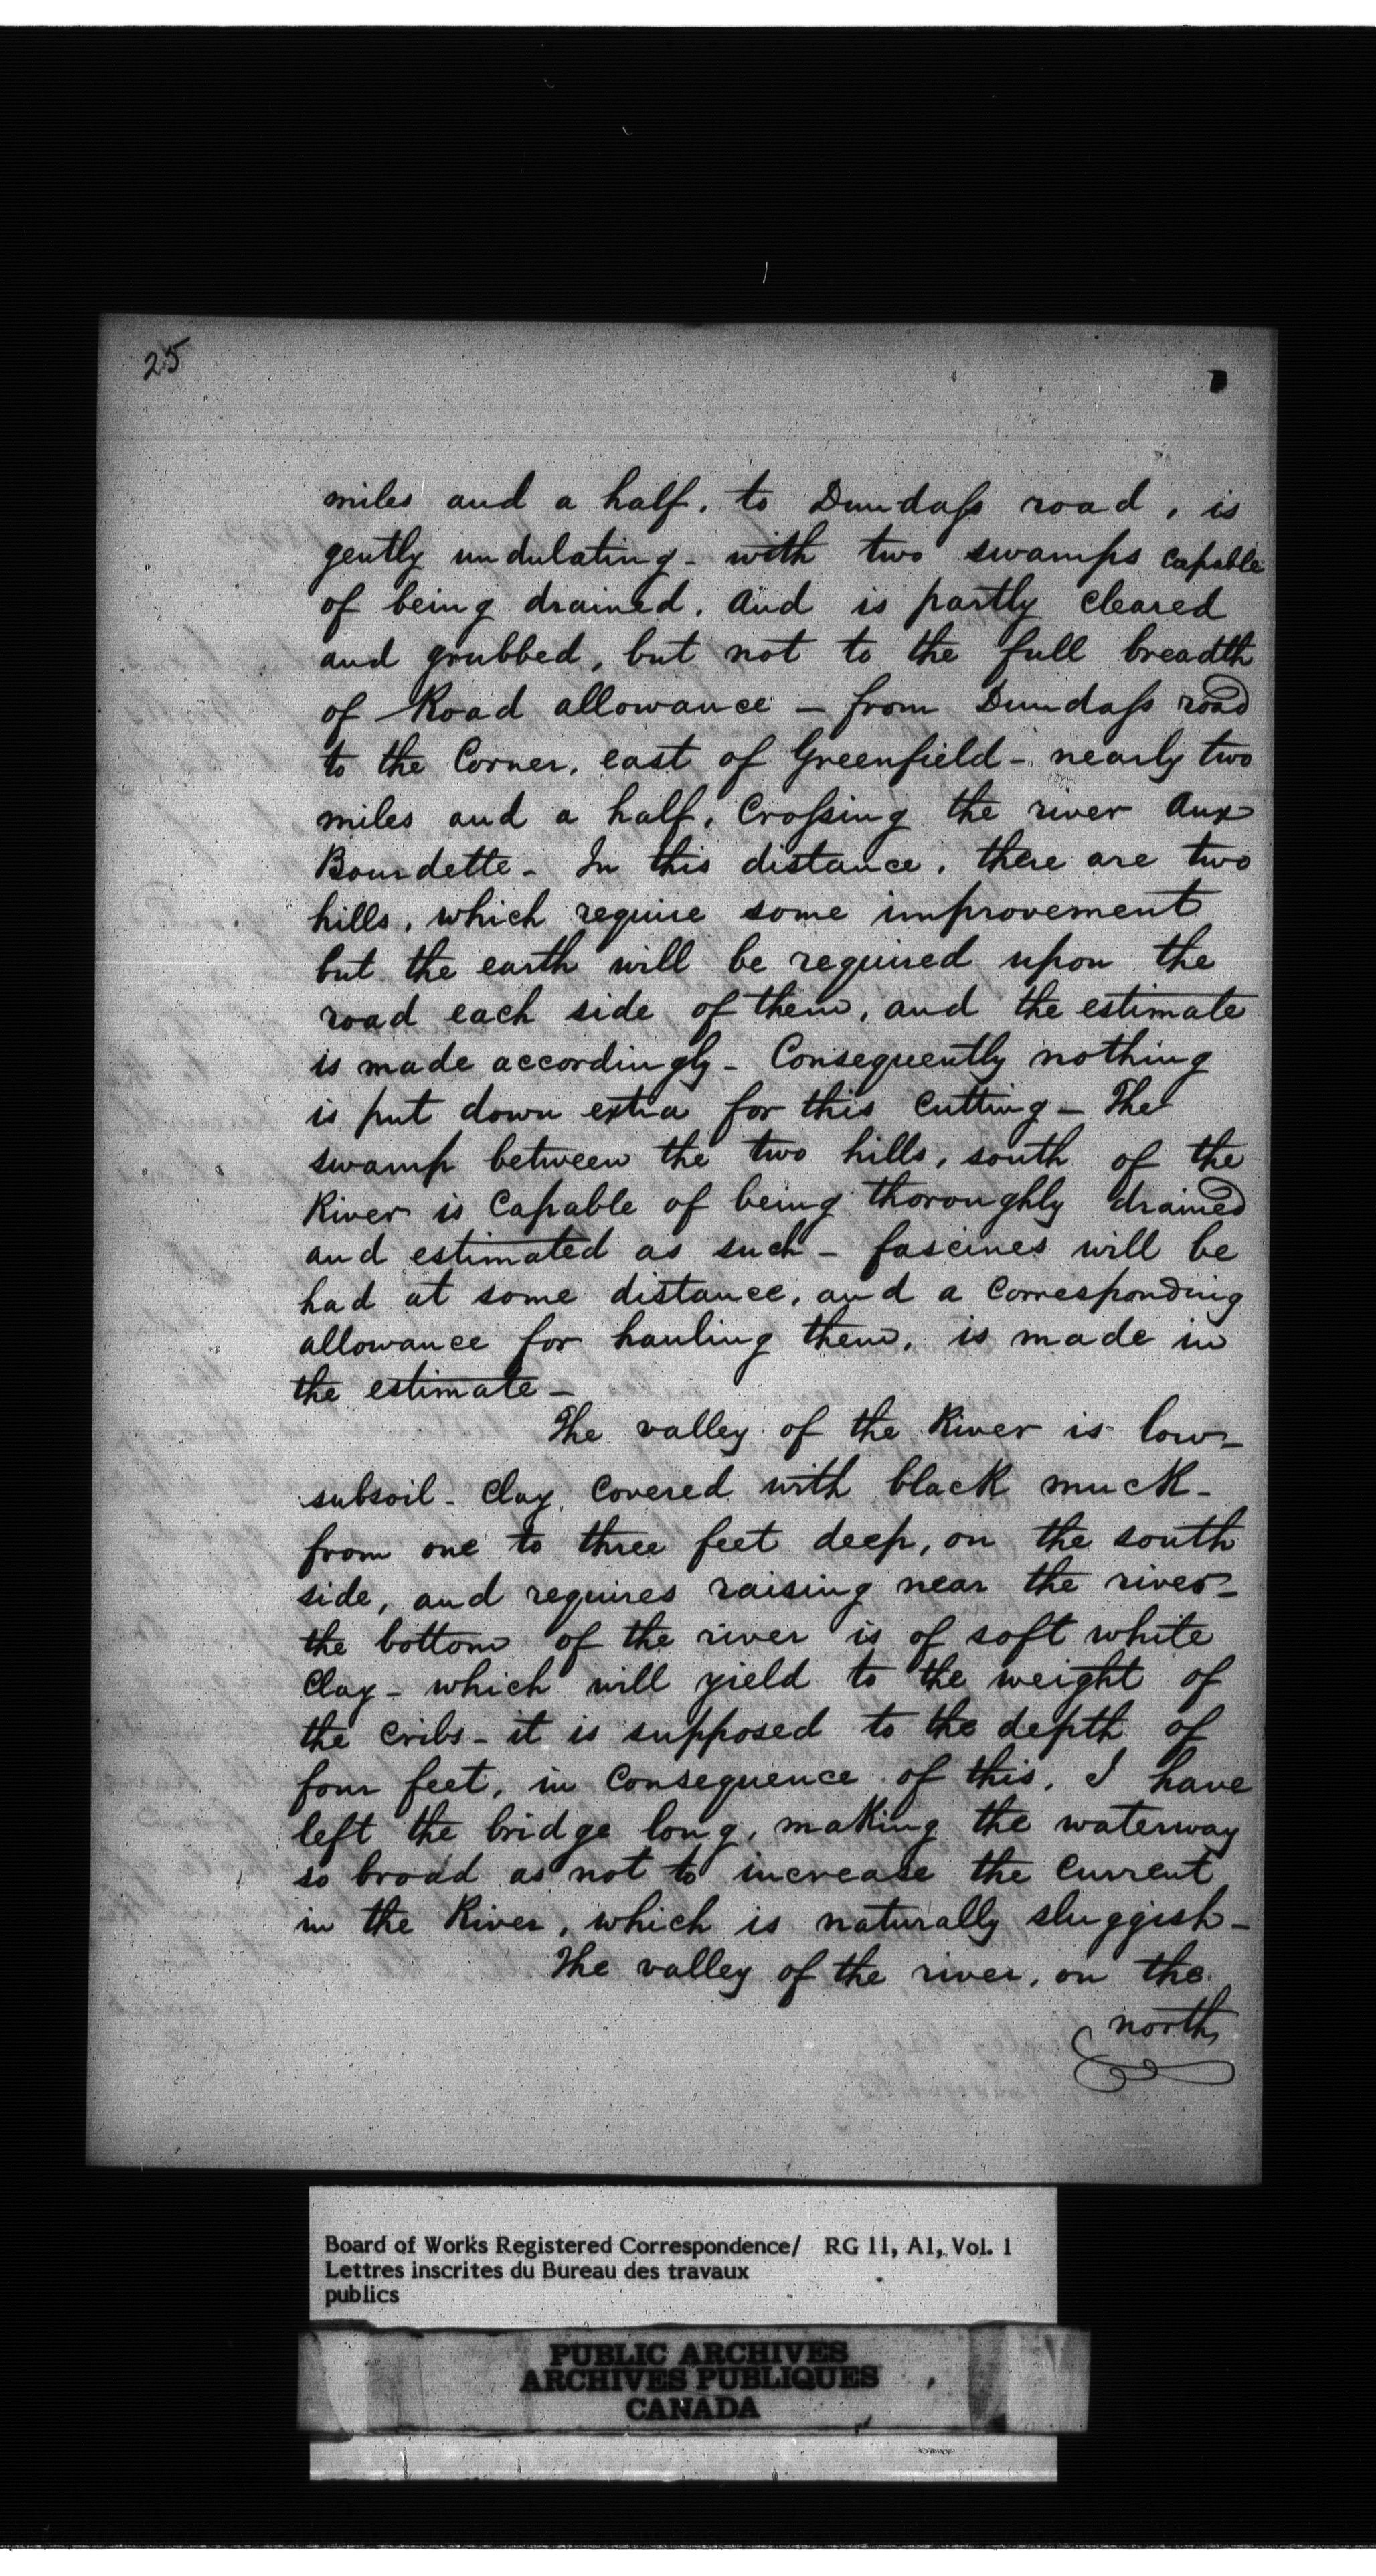 25
miles and a half, to Dundass road, is
gently undulating - with two swamps capable
of being drained, and is partly cleared
and grubbed, but not to the full breadth
of Road allowance - from Dundass road
to the Corner, east of Greenfield - nearly two
miles and a half, Crossing the river Aux
Bourdette - In this distance, there are two
hills, which require some improvement
but the earth will be required upon the
road each side of them, and the estimate
is made accordingly - Consequently nothing
is put down extra for this Cutting - The
swamp between the two hills, south of the
River is Capable of being thoroughly drained
and estimated as such - fascines will be
had at some distance, and a Corresponding
allowance for hauling them, is made in
the estimate -
The valley of the River is low -
subsoil - Clay Covered with black muck -
from one to three feet deep, on the south
side, and requires raising near the river -
the bottom of the river is of soft white
Clay - which will yield to the weight of
the Cribs - it is supposed to the depth of
four feet, in Consequence of this, I have
left the bridge long, making the waterway
so broad as not to increase the Current
in the River, which is naturally sluggish -
The valley of the river, on the
north
Board of Works Registered Correspondence/ RG 11, A1, Vol. 1
Lettres inscrites du Bureau des travaux
publics
PUBLIC ARCHIVES
ARCHIVES PUBLIQUES
CANADA